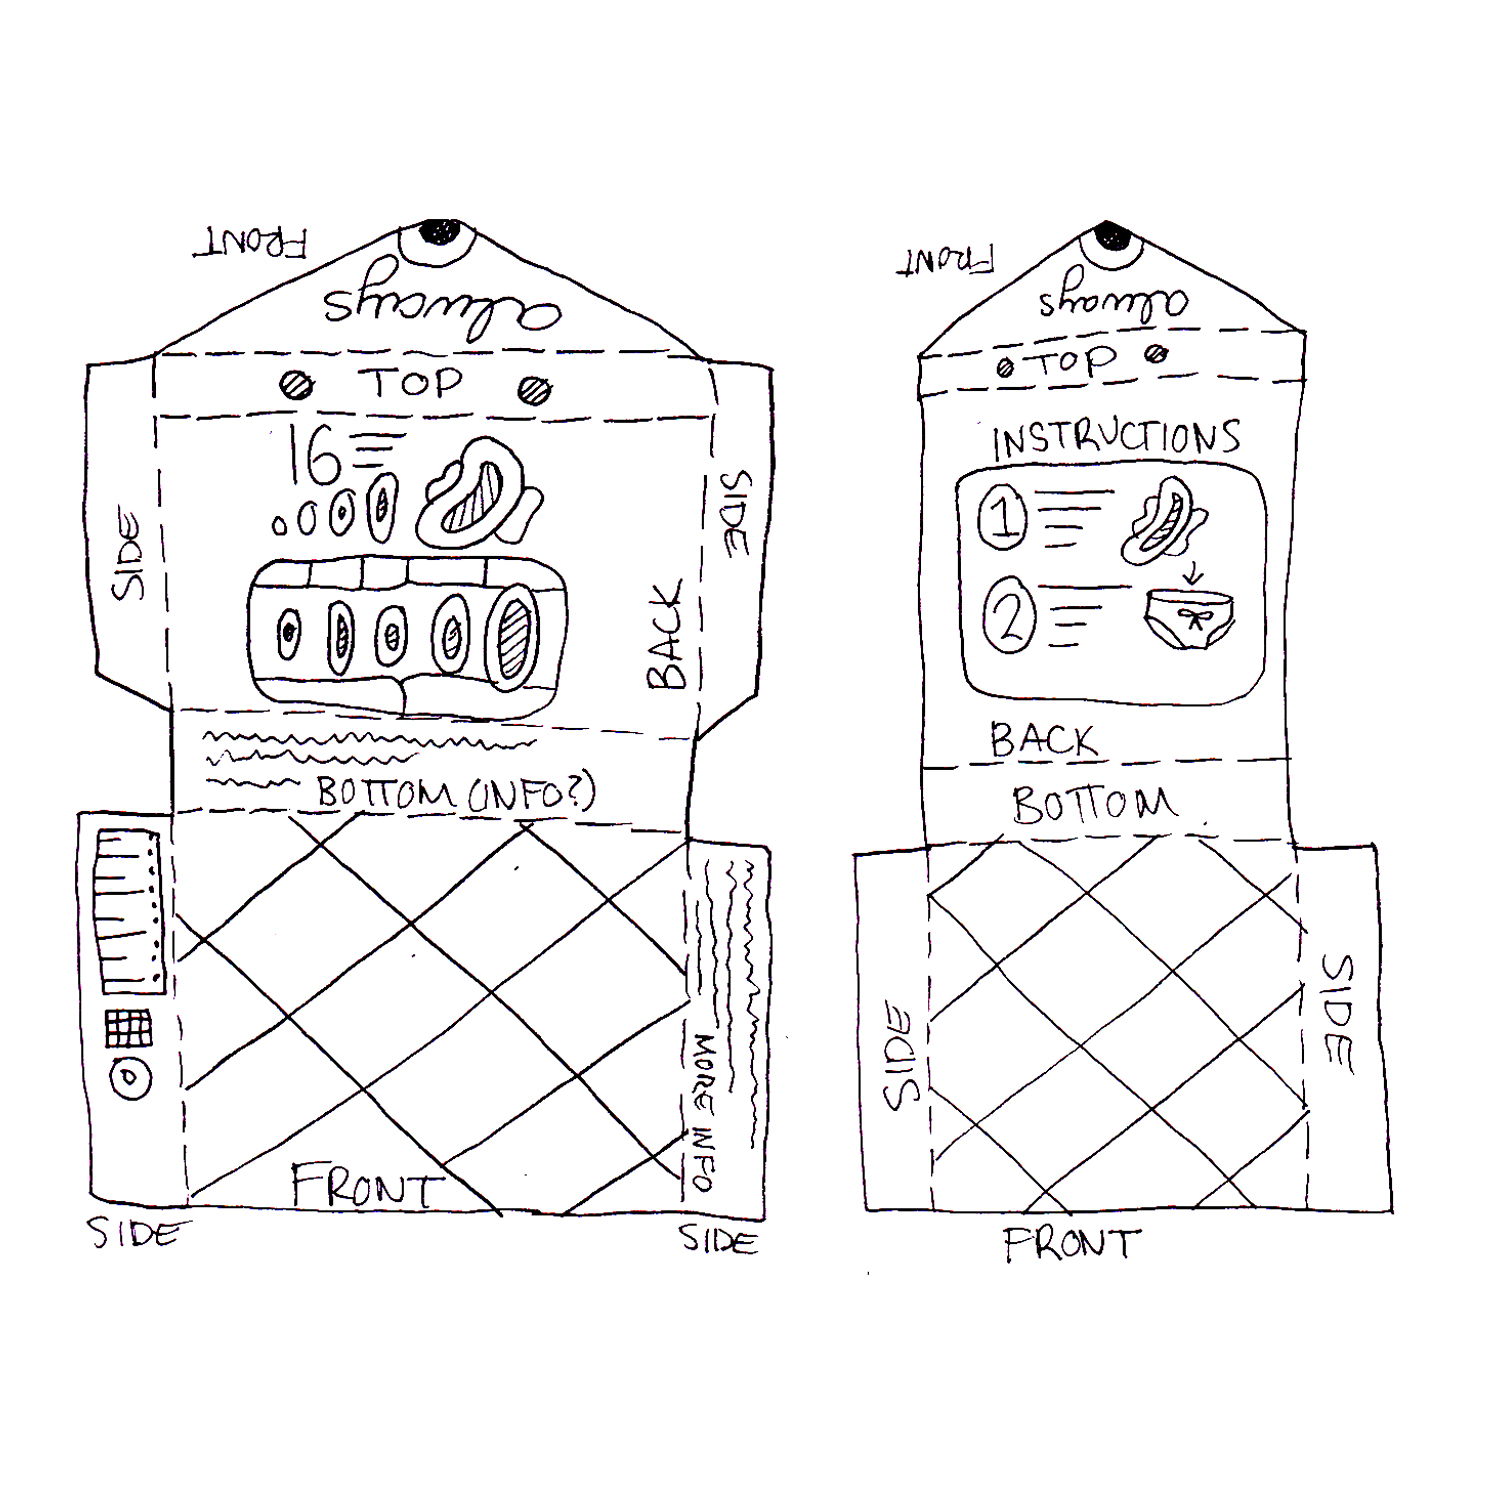 FRONT
always
TOP
16
SIDE
SIDE
BACK
BOTTOM (INFO?)
MORE INFO
FRONT
SIDE
SIDE
FRONT
always
TOP
INSTRUCTIONS
1
2
BACK
BOTTOM
SIDE
SIDE
FRONT